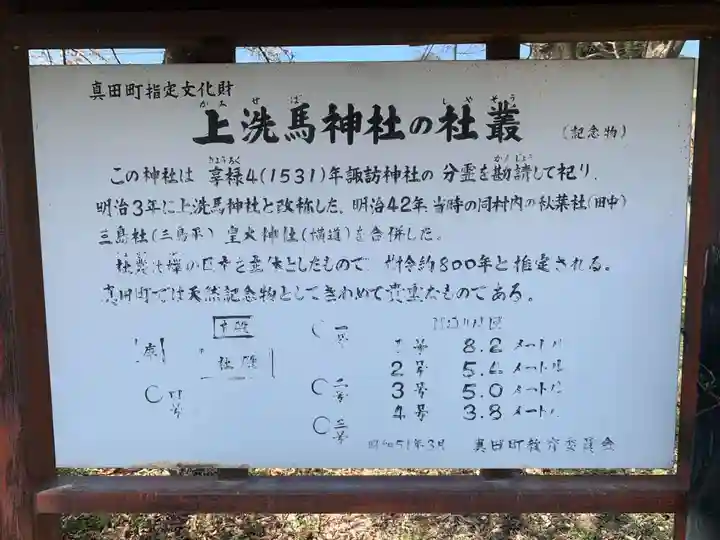 真田町指定文化財
かみ せば しゃそう
上洗馬神社の社叢
(記念物)
きょうろく かんじょう
この神社は 享禄4(1531)年諏訪神社の 分霊を勘請して祀り、
明治3年に上洗馬神社と改称した。明治42年 当時の同村内の秋葉社(田中)
三島社(三島平) 皇大神社(横道)を合併した。
社叢は欅の巨木を主体としたもので 樹令約800年と推定される。
真田町では天然記念物としてきわめて貴重なものである。
本殿
社殿
一号
二号
三号
四号
1号 8.2 メートル
2号 5.4 メートル
3号 5.0 メートル
4号 3.8 メートル
昭和51年3月 真田町教育委員会